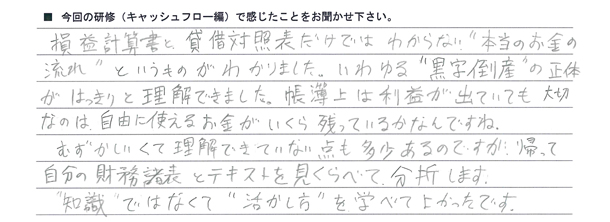 ■ 今回の研修（キャッシュフロー編）で感じたことをお聞かせ下さい。
損益計算書と、貸借対照表だけでは わからない“本当のお金の
流れ”というものがわかりました。いわゆる“黒字倒産”の正体
がはっきりと理解できました。帳簿上は利益が出ていても 大切
なのは、自由に使えるお金がいくら残っているかなんですね。
むずかしいくて理解できていない点も多少あるのですが、帰って
自分の財務諸表とテキストを見くらべて、分折します。
“知識”ではなくて“活かし方”を学べてよかったです。